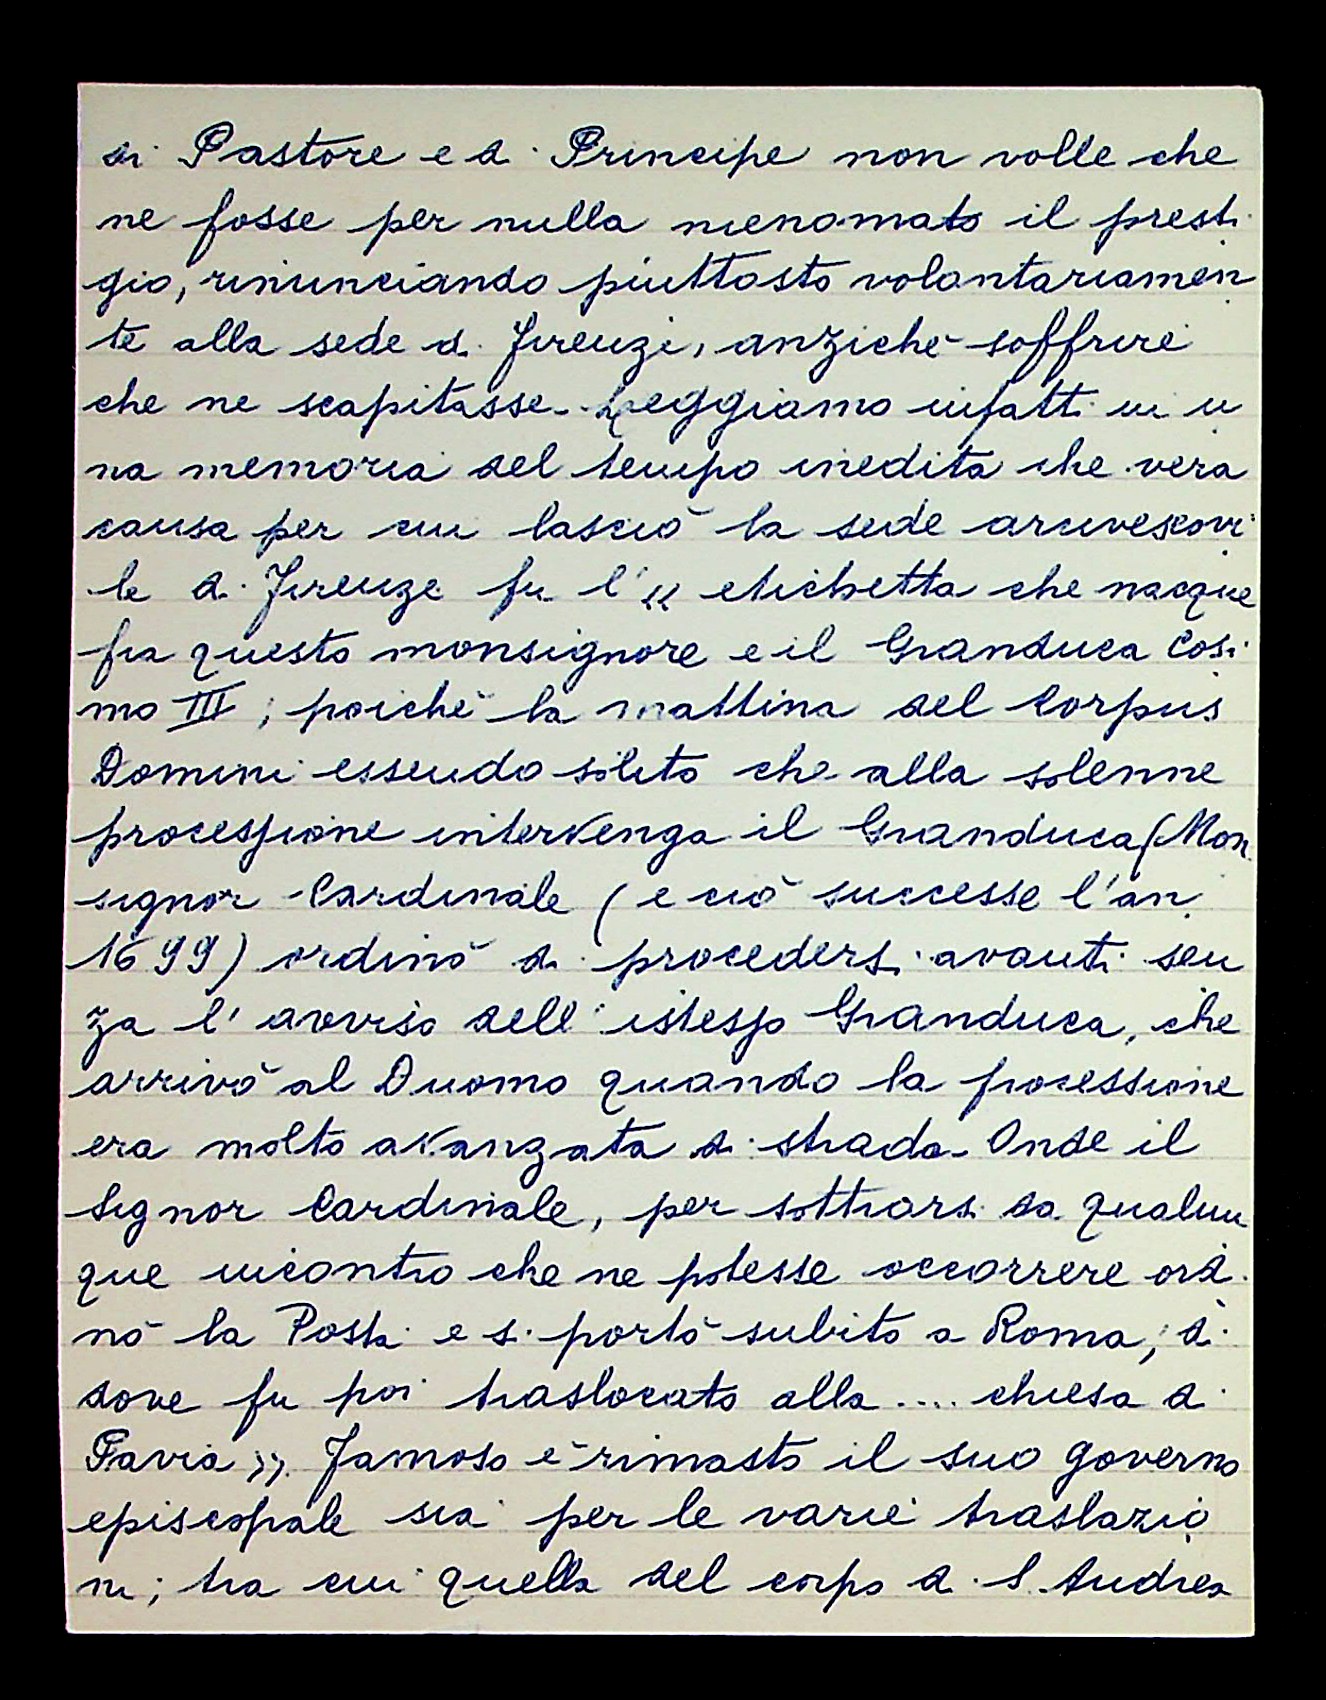 di Pastore e di Principe non volle che
ne fosse per nulla menomato il presti
gio, rinunciando piuttosto volontariamen
te alla sede di Firenze, anziché soffrire
che ne scapitasse. Leggiamo infatti in u
na memoria del tempo inedita che vera
causa per cui lasciò la sede arcivescovi
le di Firenze fu l'" etichetta che nacque
fra questo monsignore e il Granduca Cosi
mo III; poiché la mattina del Corpus
Domini essendo solito che alla solenne
processione intervenga il Granduca, Mon
signor Cardinale (e ciò successe l'an.
1699) ordinò di procedersi avanti sen
za l'avviso dell'istesso Granduca, che
arrivò al Duomo quando la processione
era molto avanzata di strada. Onde il
Signor Cardinale, per sottrarsi da qualun
que incontro che ne potesse occorrere ordi
nò la Posta e si portò subito a Roma, di
dove fu poi traslocato alla .... chiesa di
Pavia ». Famoso è rimasto il suo governo
episcopale sia per le varie traslazio
ni; tra cui quella del corpo di S. Andrea